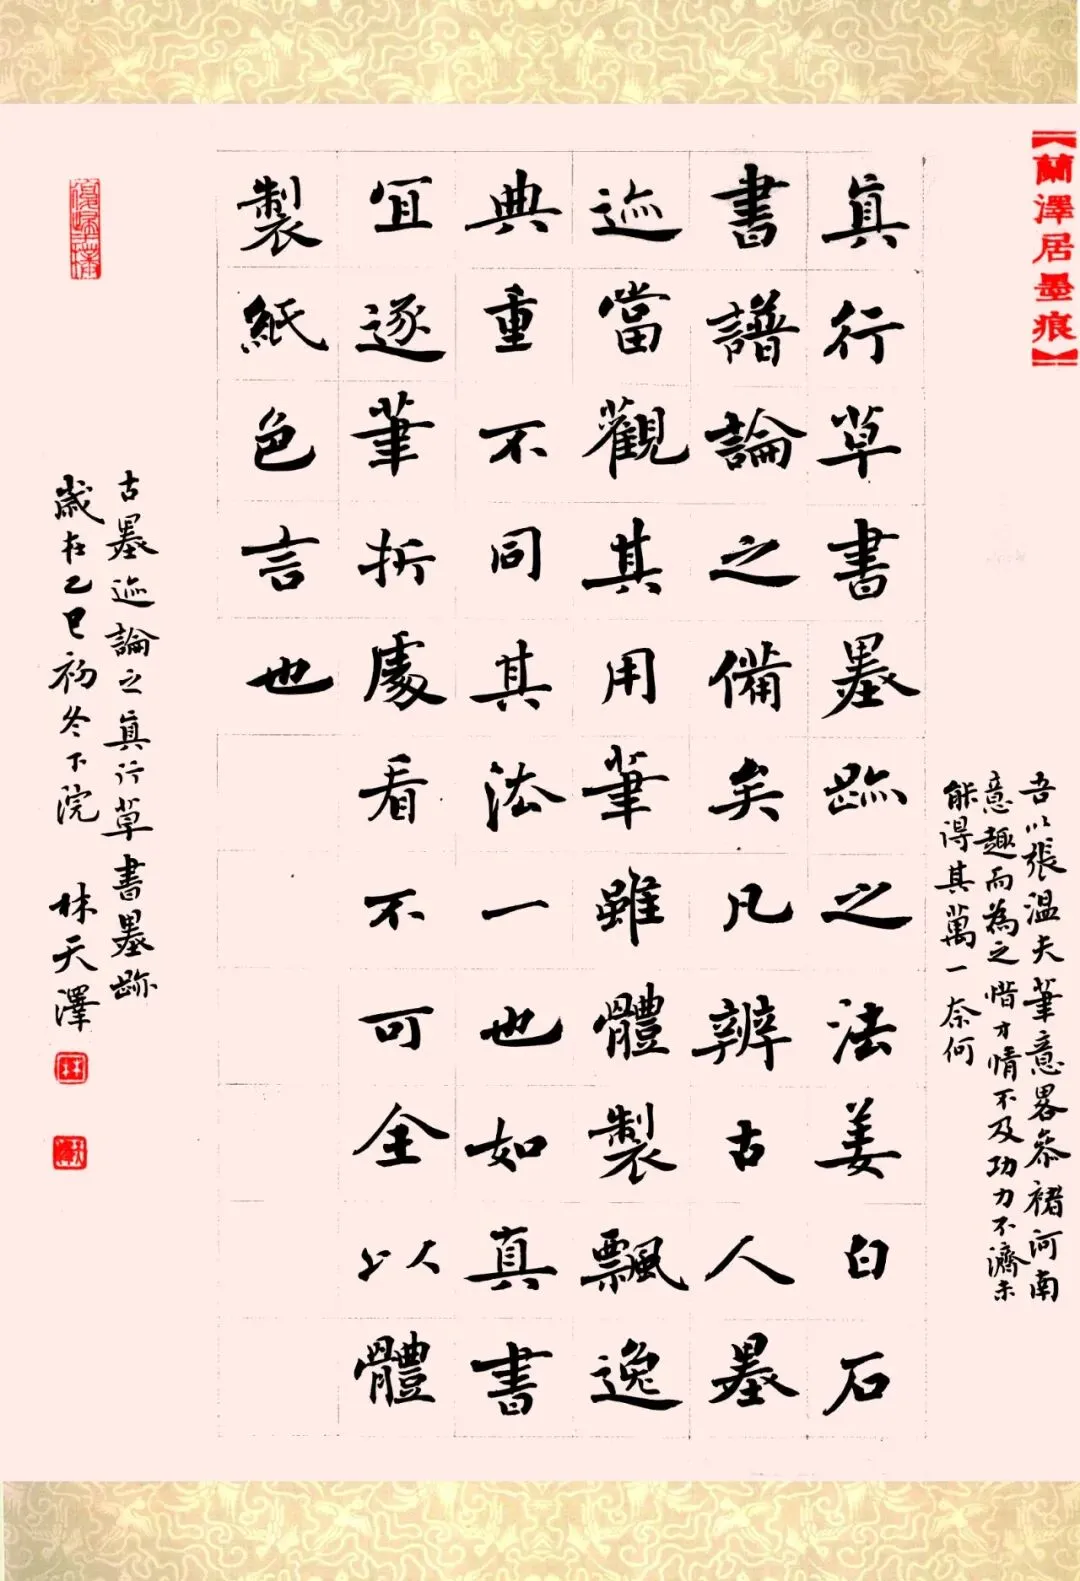 【蘭澤居墨痕】
吾以張溫夫筆意畧叅褚河南
意趣而為之惜才情不及功力不濟未
能得其萬一奈何
真行草書墨跡之法姜白石
書譜論之備矣凡辨古人墨
迹當觀其用筆雖體製飄逸
典重不同其法一也如真書
宜逐筆折處看不可全以體
製紙色言也
古墨迹論之真行草書墨跡
歲在乙巳初冬下浣 林天澤